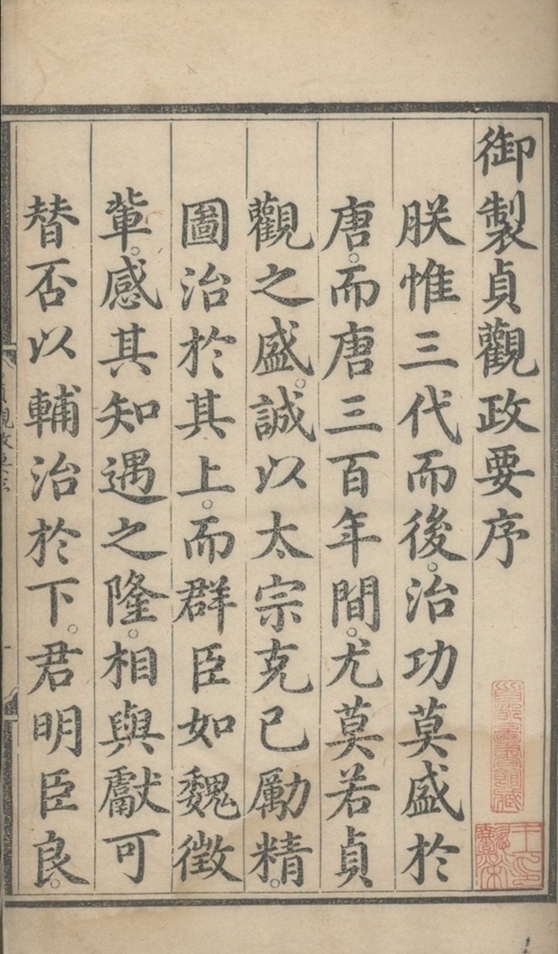 御製貞觀政要序
朕惟三代而後。治功莫盛於
唐。而唐三百年間。尤莫若貞
觀之盛。誠以太宗克己勵精。
圖治於其上。而群臣如魏徵
輩。感其知遇之隆。相與獻可
替否以輔治於下。君明臣良。